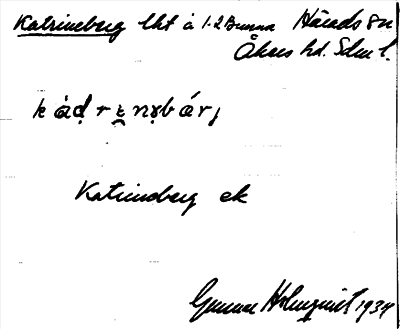 Katrineberg lht å 1-2 Bunna Härads sn
Åkers hd. Sdm l.
Katrineberg ek
Gunnar Holmqvist 1934